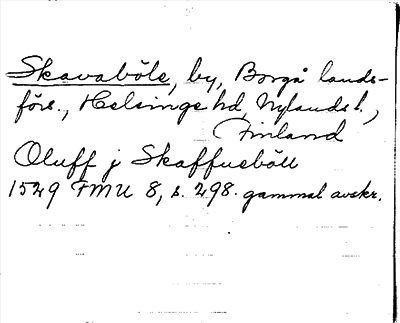 Skavaböle, by, Borgå lands-
förs., Helsinge hd, Nylands l.,
Finland
Oluff j Skaffueböll
1529 FMU 8, s. 298. gammal avskr.